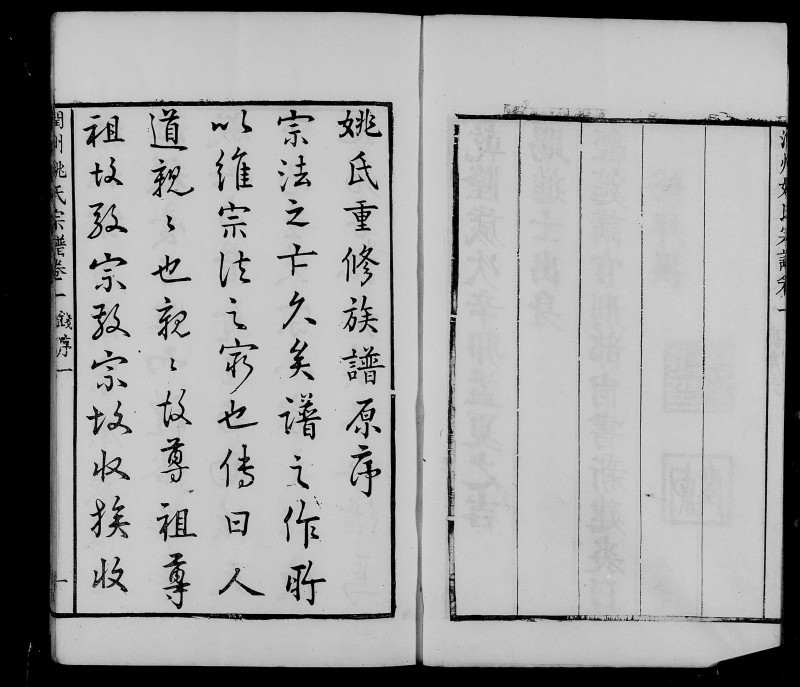 潤州姚氏宗譜卷一
姚氏重修族譜原序
宗法之亡久矣譜之作所
以維宗法之窮也傳曰人
道親〻也親〻故尊祖尊
祖故敬宗敬宗故收族收
潤州姚氏宗譜卷一 錢序一 一